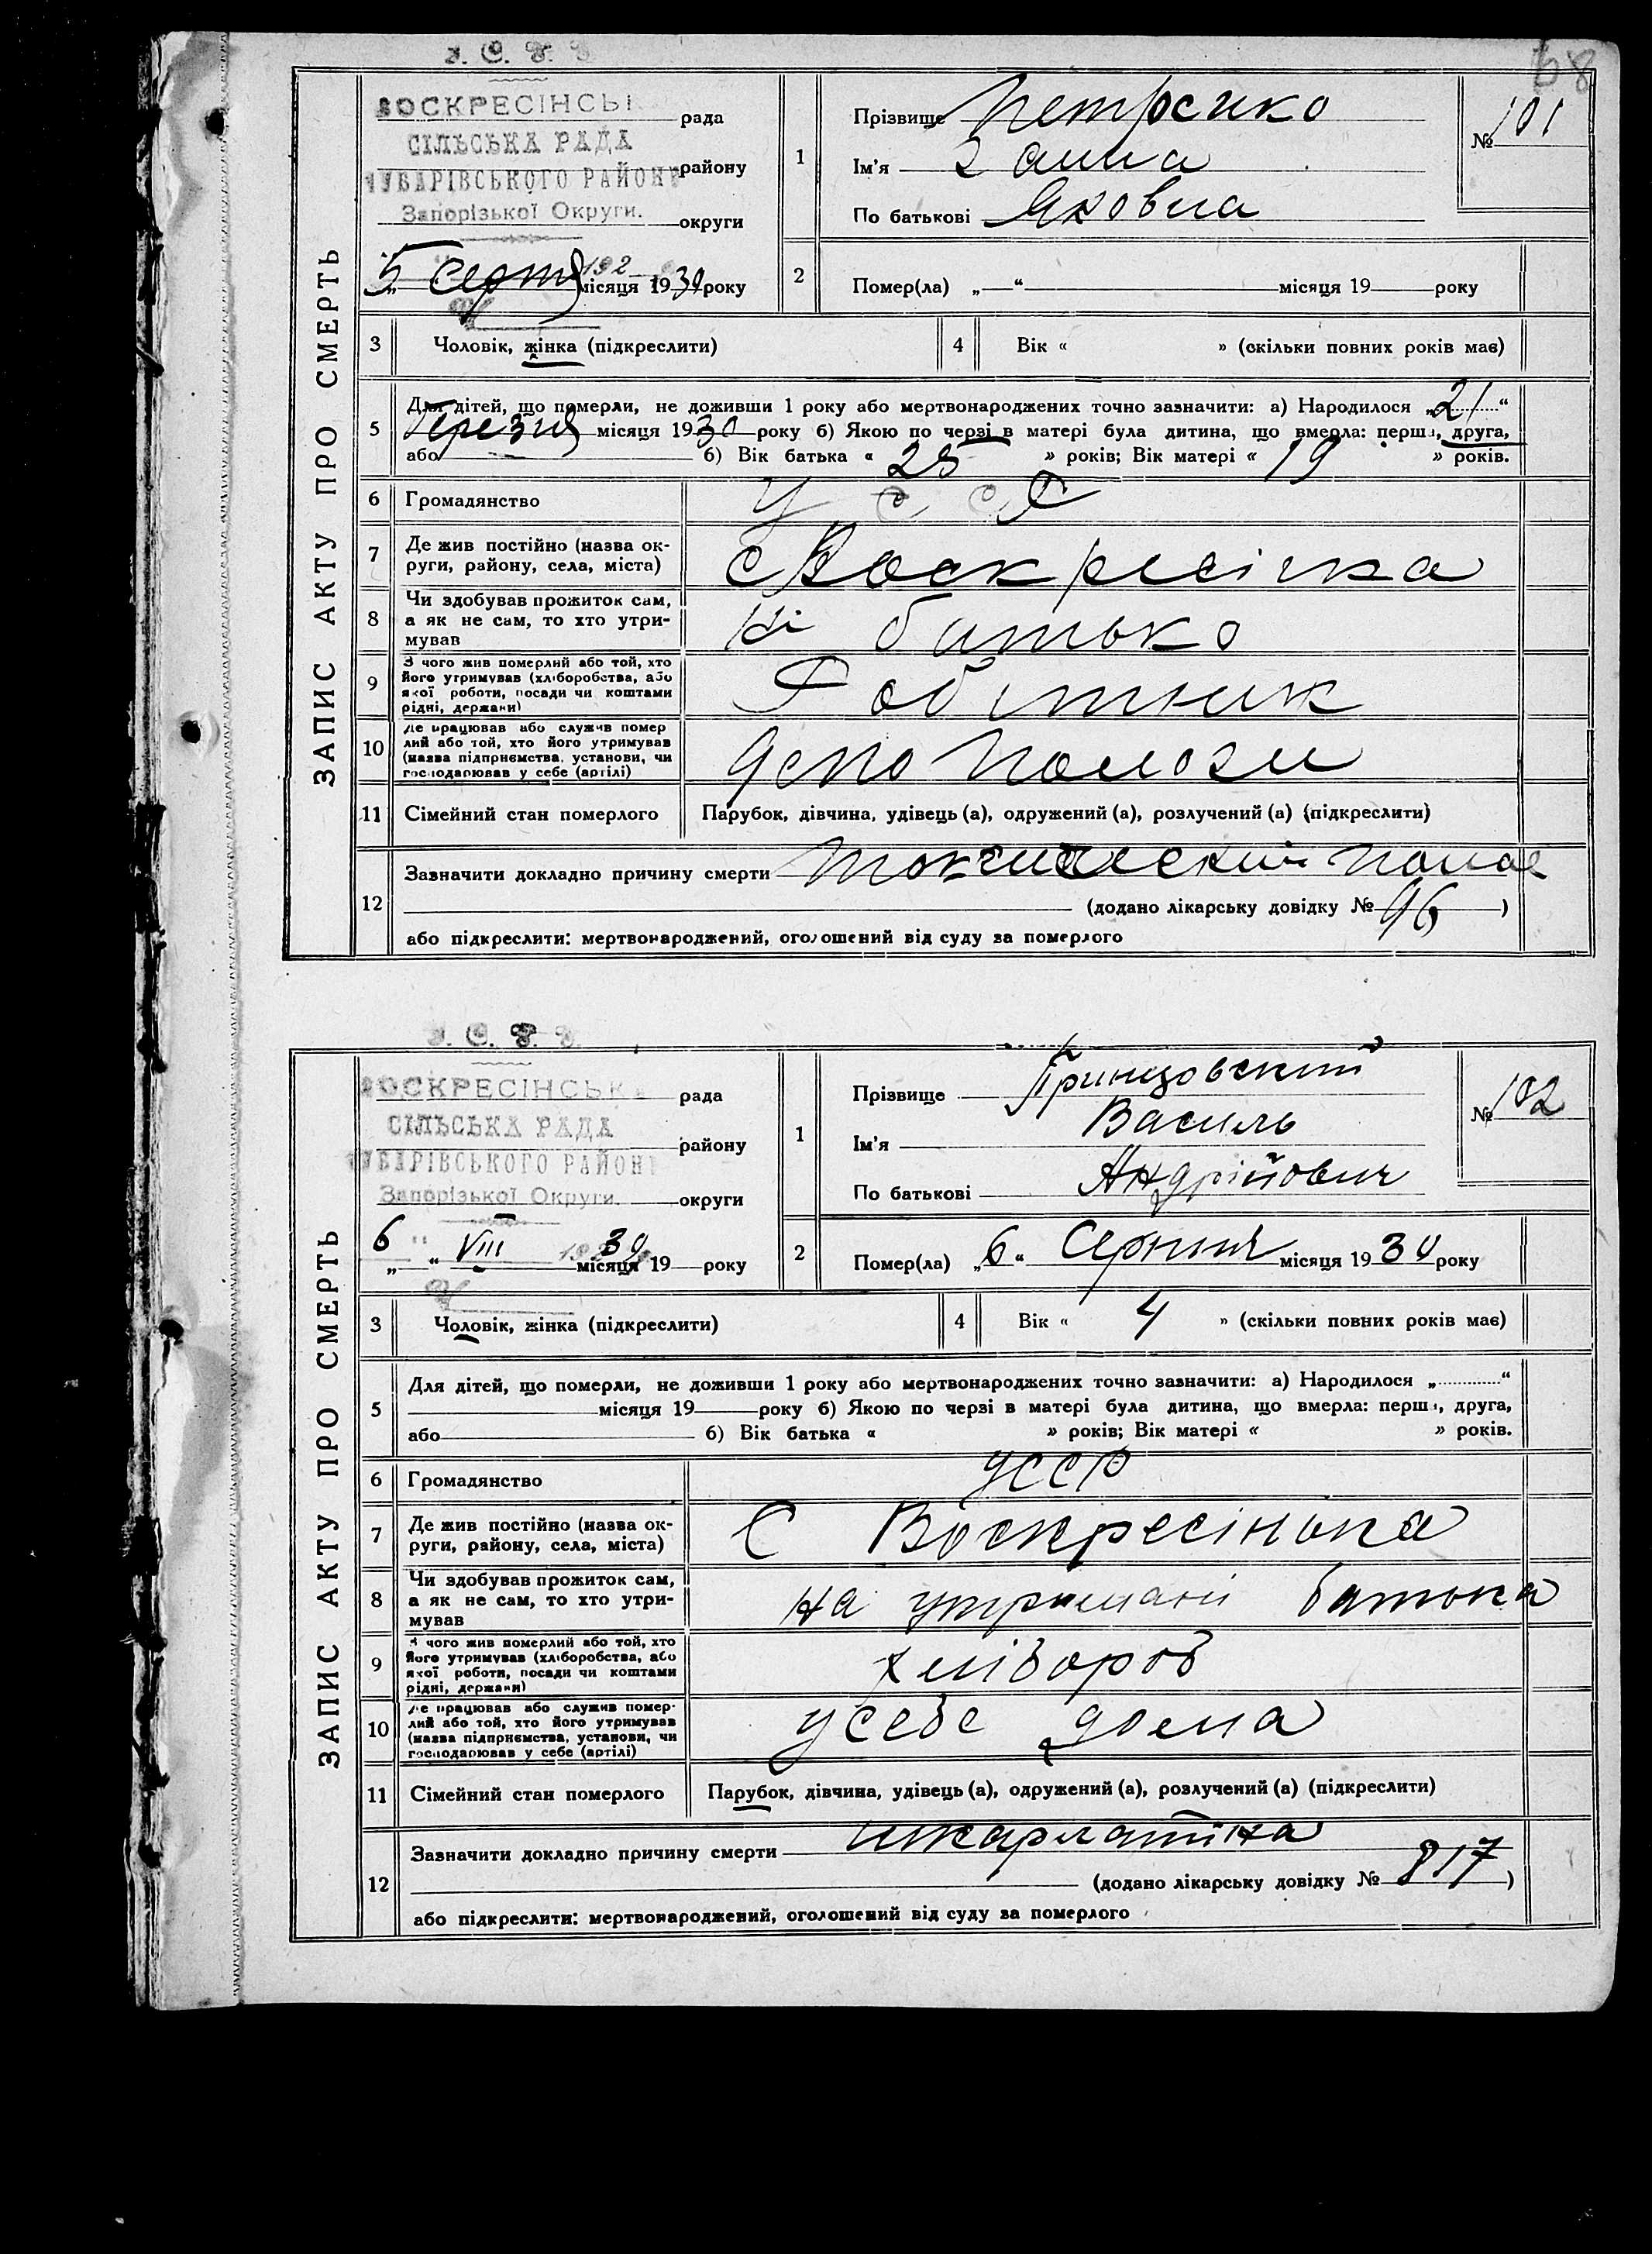 68
У. С. Р. Р.
ВОСКРЕСІНСЬК рада
СІЛЬСЬКА РАДА
ЧУБАРІВСЬКОГО РАЙОНУ району
Запорізької Округи. округи
5 Серпня 192 місяця 1930 року
ЗАПИС АКТУ ПРО СМЕРТЬ
1
Прізвище Петренко
Ім'я Ганна
По батькові Яковна
№ 101
2 Помер(ла) „ “ місяця 19 року
3 Чоловік, жінка (підкреслити)
4 Вік « » (скільки повних років має)
5 Для дітей, що померли, не доживши 1 року або мертвонароджених точно зазначити: а) Народилося „21“
Березня місяця 1930 року б) Якою по черзі в матері була дитина, що вмерла: перша, друга,
або б) Вік батька « 25 » років; Вік матері « 19 » років.
6 Громадянство У С С Р
7 Де жив постійно (назва ок-
руги, району, села, міста) с Воскресінка
8 Чи здобував прожиток сам,
а як не сам, то хто утри-
мував Ні батько
9 З чого жив померлий або той, хто
його утримував (хліборобства, або
якої роботи, посади чи коштами
рідні, держави) Робітник
10 Де працював або служив помер
лий або той, хто його утримував
(назва підприємства, установи, чи
господарював у себе (артілі) депо Пологи
11 Сімейний стан померлого Парубок, дівчина, удівець (а), одружений (а), розлучений (а) (підкреслити)
12 Зазначити докладно причину смерти токсический понос
(додано лікарську довідку № 96)
або підкреслити: мертвонароджений, оголошений від суду за померлого
У. С. Р. Р.
ВОСКРЕСІНСЬКА рада
СІЛЬСЬКА РАДА
ЧУБАРІВСЬКОГО РАЙОНУ району
Запорізької Округи. округи
6 „ “ VIII 192 30 місяця 19 року
ЗАПИС АКТУ ПРО СМЕРТЬ
1
Прізвище Гринцовский
Ім'я Василь
По батькові Андрійович
№ 102
2 Помер(ла) „6“ Серпня місяця 1930 року
3 Чоловік, жінка (підкреслити)
4 Вік « 4 » (скільки повних років має)
5 Для дітей, що померли, не доживши 1 року або мертвонароджених точно зазначити: а) Народилося „ “
місяця 19 року б) Якою по черзі в матері була дитина, що вмерла: перша, друга,
або б) Вік батька « » років; Вік матері « » років.
6 Громадянство УССР
7 Де жив постійно (назва ок-
руги, району, села, міста) С Воскресінька
8 Чи здобував прожиток сам,
а як не сам, то хто утри-
мував на утримані батька
9 З чого жив померлий або той, хто
його утримував (хліборобства, або
якої роботи, посади чи коштами
рідні, держави) хлібороб
10 Де працював або служив помер-
лий або той, хто його утримував
(назва підприємства, установи, чи
господарював у себе (артілі) у себе дома
11 Сімейний стан померлого Парубок, дівчина, удівець (а), одружений (а), розлучений (а) (підкреслити)
12 Зазначити докладно причину смерти шкарлатіна
(додано лікарську довідку № 817)
або підкреслити: мертвонароджений, оголошений від суду за померлого